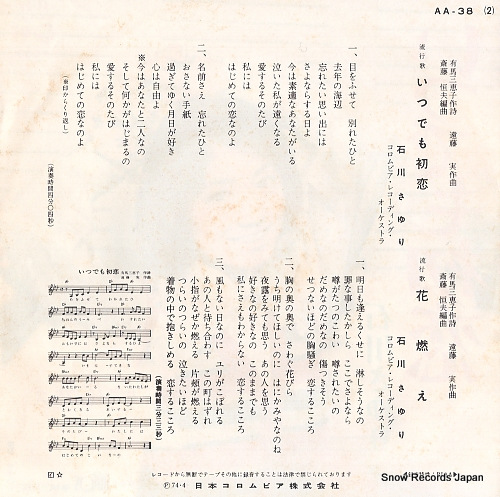 AA-38 (2)
有馬三恵子作詩 遠藤 実作曲
斎藤 恒夫編曲
流行歌 いつでも初恋
石川さゆり
コロムビア・レコーディング・
オーケストラ
一、目をふせて 別れたひと
去年の海辺
忘れたい思い出には
さよならする日よ
今は素適なあなたがいる
泣いた私が遠くなる
愛するそのたび
私には
はじめての恋なのよ
二、名前さえ 忘れたひと
おさない手紙
過ぎてゆく月日が好き
心は自由よ
※今はあなたと二人なの
そして何かがはじまるの
愛するそのたび
私には
はじめての恋なのよ
(※印からくり返し)
(演奏時間四分〇四秒)
有馬三恵子作詩 遠藤 実作曲
斎藤 恒夫編曲
流行歌 花燃え
石川さゆり
コロムビア・レコーディング・
オーケストラ
一、明日も逢えるくせに 淋しそうなの
罪な事したかしら ここでさよなら
噂がたつとこわい 噂されたいの
だめなのだめなの 傷つきそう
せつないほどの胸騒ぎ 恋するこころ
二、胸の奥の奥で さわぐ花びら
うち明けてほしいのに はにかみやなのね
夜露をみても思う あの人を思う
好きなの好きなの このままでも
私にさえもわからない 恋するこころ
三、風もない日なのに ユリがこぼれる
あの人と待ち合わす この町はずれ
小指がなぜか燃える 片頬が燃える
つらいのつらいの 泣きたいほど
着物の中で抱きしめる 恋するこころ
(演奏時間三分三三秒)
いつでも初恋
有馬三恵子 作詩
遠藤 実 作曲
レコードから無断でテープその他に録音することは法律で禁じられております
Ⓟ74・4 日本コロムビア株式会社
Snow Records Japan
www.snowrecords.jp